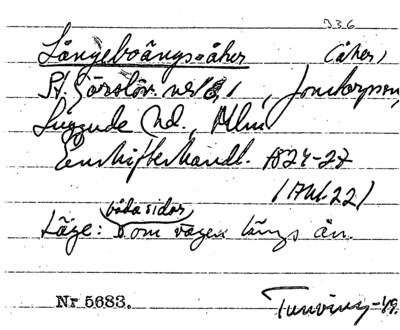 336
Långeboängs=åker (åker)
St. Görslöv nr 8, 1, Jonstorpssn,
Luggude hd., Mlm
Enskifteshandl. 1824-27
(Akt. 22)
båda sidor
Läge: om vägen längs ån.
Nr 5683.
Tunving -49.